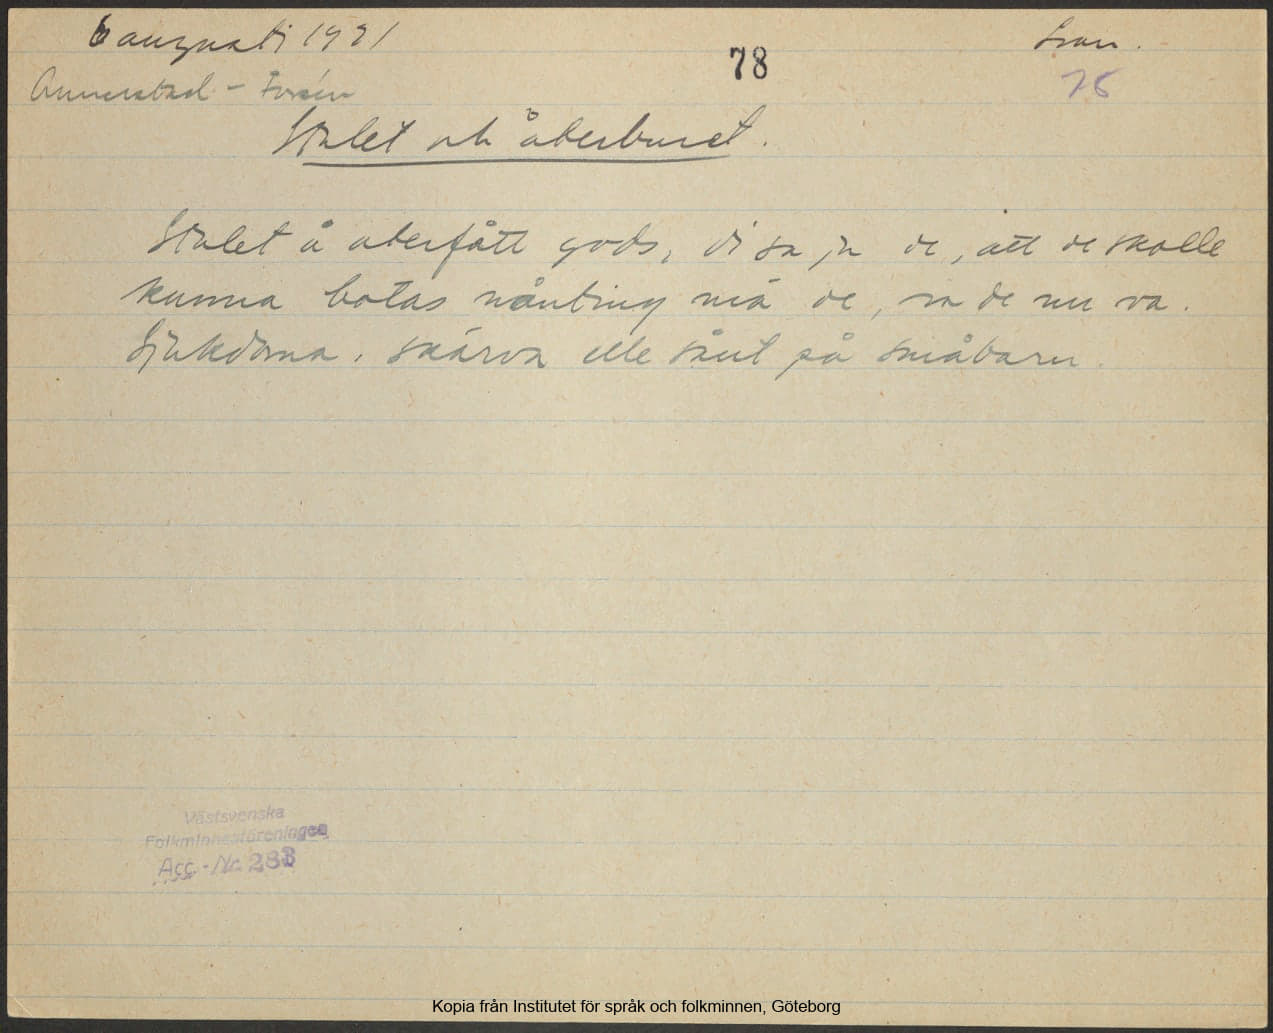 6 augusti 1921
78
75
Annerstad - Forsén
Stulet och återburet.
Stulet å aterfått gods, di sa ju de, att de skolle
kunna botas nånting mä de, va de nu va.
Sjukdoma, skärva elle sånt på småbarn.
Västsvenska
Folkminnesföreningen
Acc.-Nr. 283
Kopia från Institutet för språk och folkminnen, Göteborg